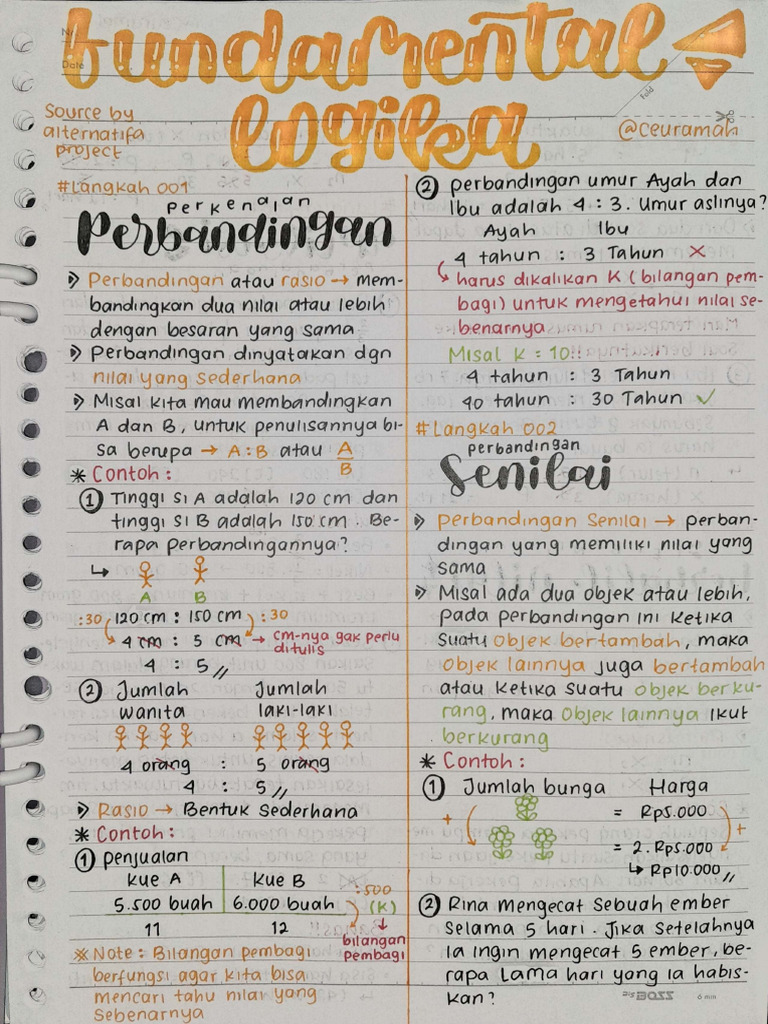 fundamental
logika
No
Date
fold
Source by
alternatifa
project
@ceuramah
#Langkah 001
perkenalan
Perbandingan
Perbandingan atau rasio → mem-
bandingkan dua nilai atau lebih
dengan besaran yang sama
Perbandingan dinyatakan dgn
nilai yang sederhana
Misal kita mau membandingkan
A dan B, untuk penulisannya bi-
sa berupa → A:B atau A/B
* Contoh:
① Tinggi si A adalah 120 cm dan
tinggi si B adalah 150 cm. Be-
rapa perbandingannya?
A B
:30 120 cm : 150 cm :30
4 cm : 5 cm → cm-nya gak perlu
ditulis
4 : 5 //
② Jumlah Jumlah
wanita laki-laki
4 orang : 5 orang
4 : 5 //
Rasio → Bentuk Sederhana
* Contoh:
① penjualan
kue A kue B
:500
5.500 buah 6.000 buah (K)
11 12
bilangan
pembagi
* Note: Bilangan pembagi
berfungsi agar kita bisa
mencari tahu nilai yang
sebenarnya
② perbandingan umur Ayah dan
Ibu adalah 4 : 3. Umur aslinya?
Ayah Ibu
4 tahun : 3 Tahun ×
harus dikalikan K (bilangan pem-
bagi) untuk mengetahui nilai se-
benarnya
Misal K = 10!!
4 tahun : 3 Tahun
40 tahun : 30 Tahun ✓
#Langkah 002
perbandingan
Senilai
Perbandingan Senilai → perban-
dingan yang memiliki nilai yang
sama
Misal ada dua objek atau lebih,
pada perbandingan ini ketika
suatu objek bertambah, maka
objek lainnya juga bertambah
atau ketika suatu objek berku-
rang, maka objek lainnya ikut
berkurang
* Contoh:
① Jumlah bunga Harga
= Rp5.000
+ +
= 2.Rp5.000
↳ Rp10.000 //
② Rina mengecat sebuah ember
selama 5 hari. Jika setelahnya
ia ingin mengecat 5 ember, be-
rapa lama hari yang ia habis-
kan?
6 mm